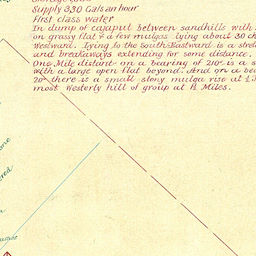 Supply 330 Gals an hour
First class water
In clump of cajaput between sandhills with
on grassy flat & a few mulgas lying about 30 ch
Westward. Lying to the South Eastward is a stro
and breakaways extending for some distance.
One Mile distant on a bearing of 210° is a s
with a large open flat beyond. And on a bea
20° there is a small stony mulga rise at
most westerly hill of group at 1½ Miles.
one
ered